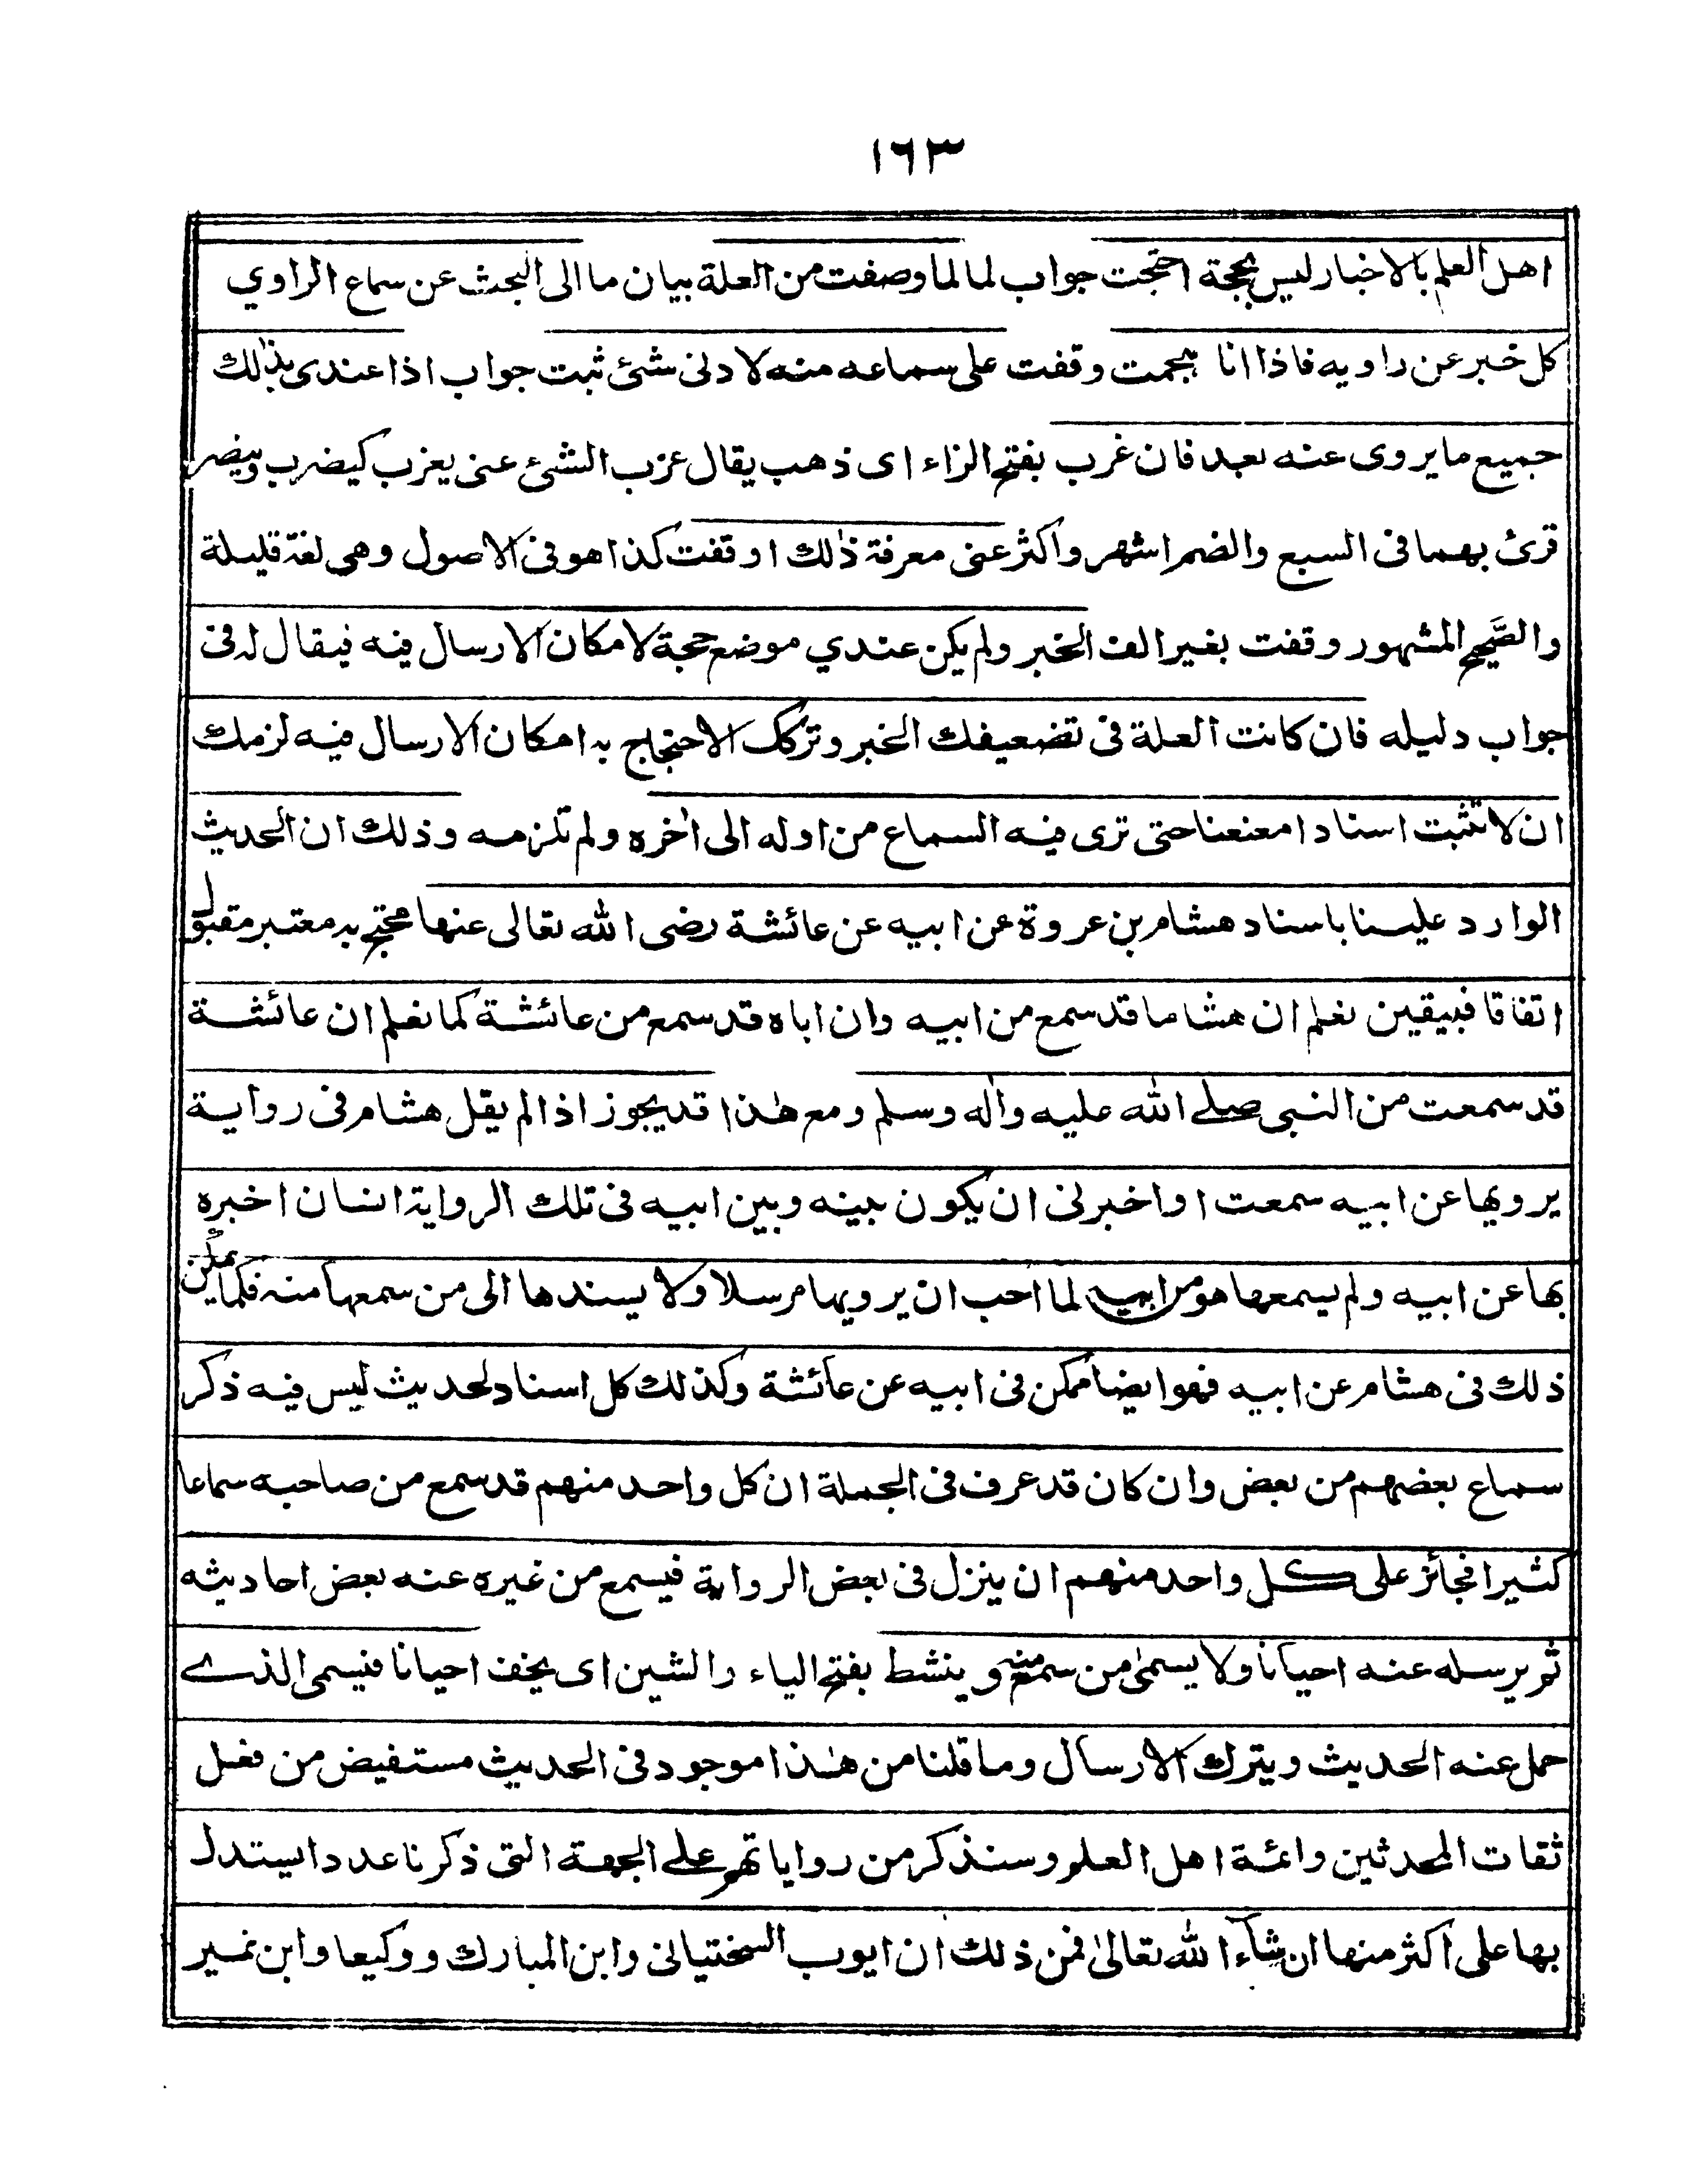 ١٦٣
اهل العلم بالاخبار ليس بحجة احتججت جواب لما لما وصفت من العلة بيان ما الى البحث عن سماع الراوي
كل خبر عن راويه فاذا انا هجمت وقفت على سماعه منه لادنى شئ ثبت جواب اذا عندى بذٰلك
جميع ما يروى عنه بعد فان غرب بفتح الزاء اى ذهب يقال عزب الشئ عنى يعزب كيضرب وينصر
قرئ بهما فى السبع والضم اشهر واكثر عنى معرفة ذٰلك اوقفت كذا هو فى الاصول وهى لغة قليلة
والصَّحيح المشهور وقفت بغير الف الخبر ولم يكن عندي موضع حجة لامكان الارسال فيه فيقال له فى
جواب دليله فان كانت العلة فى تضعيفك الخبر وتركك الاحتجاج به امكان الارسال فيه لزمك
ان لا تثبت اسنادا معنعنا حتى ترى فيه السماع من اوله الى اٰخره ولم تلزمه وذلك ان الحديث
الوارد علينا باسناد هشام بن عروة عن ابيه عن عائشة رضى الله تعالى عنها محتج به معتبر مقبول
اتفاقا فبيقين نعلم ان هشاما قد سمع من ابيه وان اباه قد سمع من عائشة كما نعلم ان عائشة
قد سمعت من النبى صلے الله عليه واٰله وسلم ومع هٰذا قد يجوز اذا لم يقل هشام فى رواية
يرويها عن ابيه سمعت او اخبرنى ان يكون بينه وبين ابيه فى تلك الرواية انسان اخبره
بها عن ابيه ولم يسمعها هو من ابيه لما احب ان يرويها مرسلا ولا يسندها الى من سمعها منه فكما يمكن
ذلك فى هشام عن ابيه فهو ايضا ممكن فى ابيه عن عائشة وكذلك كل اسناد لحديث ليس فيه ذكر
سماع بعضهم من بعض وان كان قد عرف فى الجملة ان كل واحد منهم قد سمع من صاحبه سماعا
كثيرا فجائز على كل واحد منهم ان ينزل فى بعض الرواية فيسمع من غيره عنه بعض احاديثه
ثم يرسله عنه احيانا ولا يسمى من سمع منه وينشط بفتح الياء والشين اى يخف احيانا فيسمى الذے
حمل عنه الحديث ويترك الارسال وما قلنا من هٰذا موجود فى الحديث مستفيض من فعل
ثقات المحدثين وائمة اهل العلم وسنذكر من رواياتهم علے الجهة التى ذكرنا عددا يستدل
بها على اكثر منها ان شآء الله تعالىٰ فمن ذلك ان ايوب السختيانى وابن المبارك ووكيعا وابن نمير